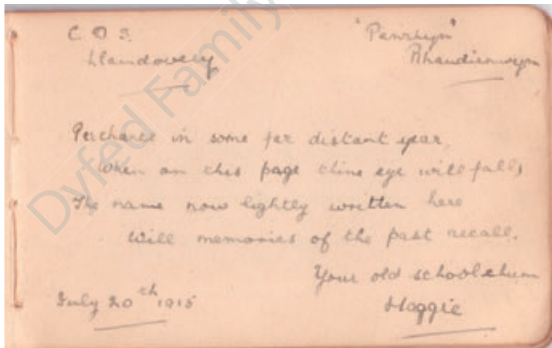 C.O.S.
Llandovery
"Penrhyn"
Rhandirmwyn
Perchance in some far distant year,
When on this page thine eye will fall,
The name now lightly written here
Will memories of the past recall.
Your old school chum
Maggie
July 20th 1915
Dyfed Family